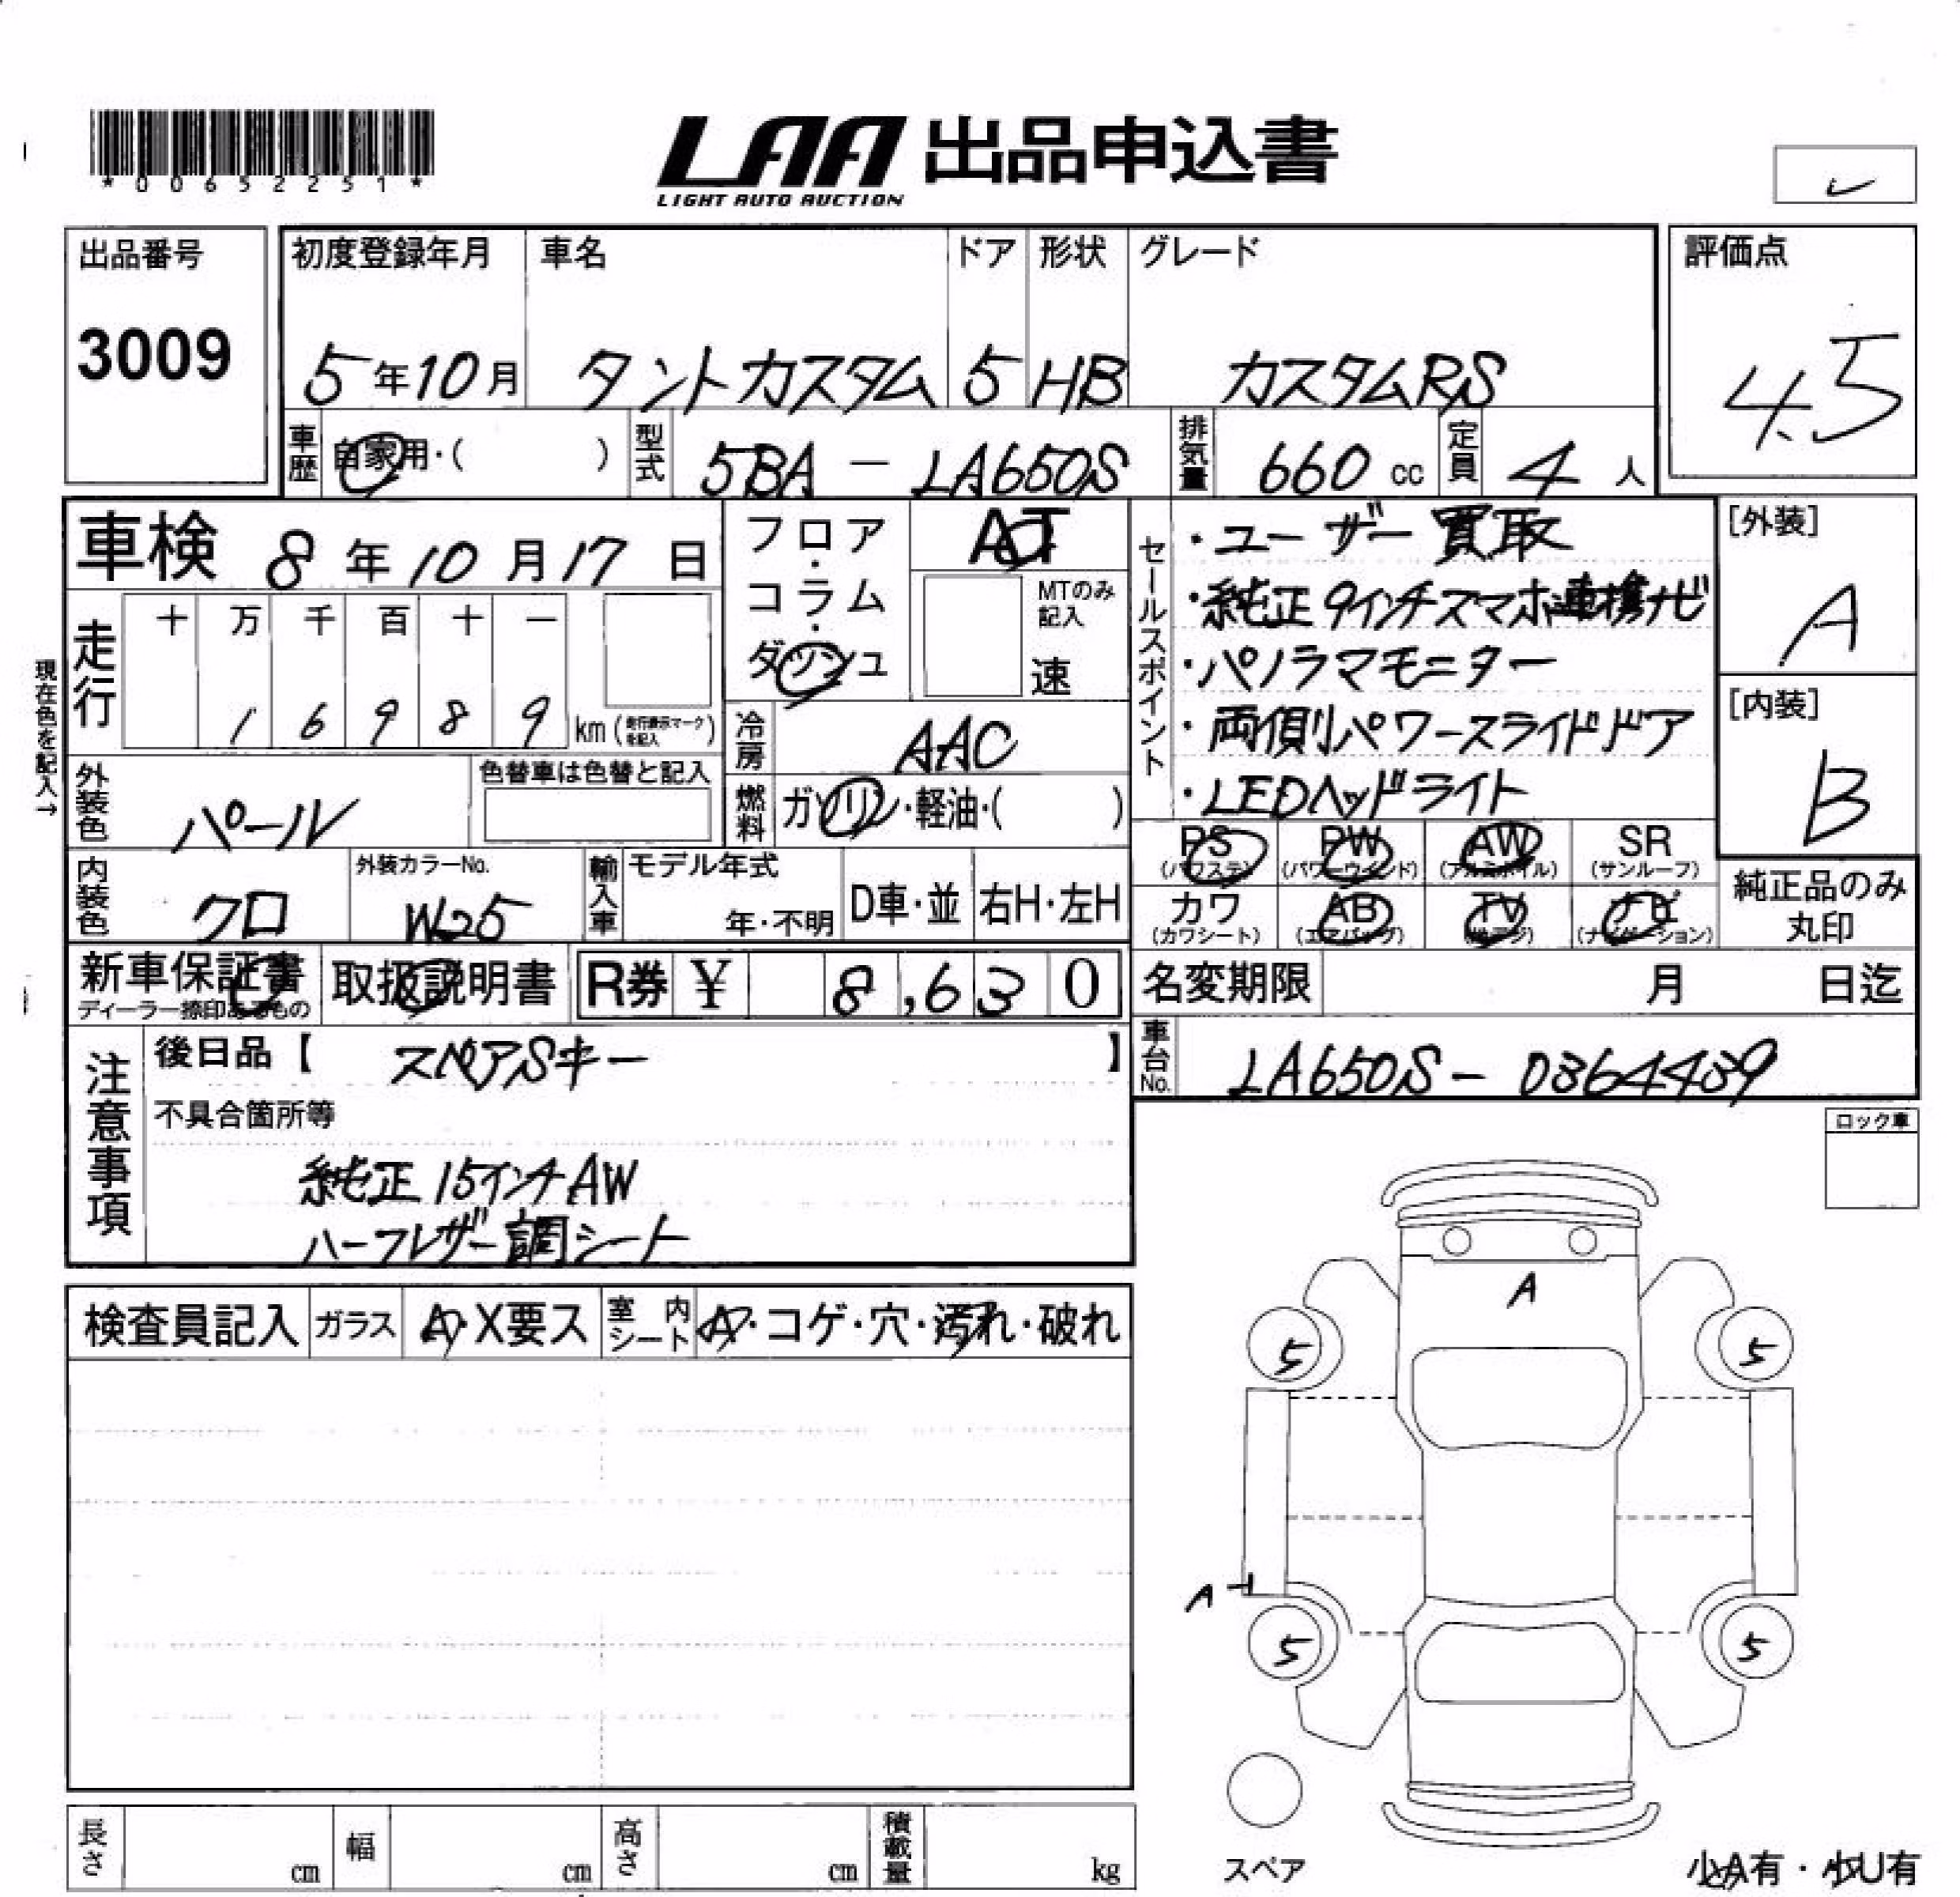 *00652251*
LAA 出品申込書
LIGHT AUTO AUCTION
レ
出品番号
3009
初度登録年月
5年10月
車名
タントカスタム
ドア
5
形状
HB
グレード
カスタムRS
評価点
4.5
車歴
自家用・( )
型式
5BA - LA650S
排気量
660 cc
定員
4 人
車検 8年10月17日
フロア・コラム・ダッシュ
AT
MTのみ記入
速
セールスポイント
・ユーザー買取
・純正9インチスマホ連携ナビ
・パノラマモニター
・両側パワースライドドア
・LEDヘッドライト
[外装]
A
[内装]
B
現在色を記入→
走行
十 万 千 百 十 一
1 6 9 8 9 km (走行表示マークを記入)
冷房
AAC
外装色
パール
色替車は色替と記入
燃料
ガソリン・軽油・( )
PS (パワステ)
PW (パワーウインド)
AW (アルミホイル)
SR (サンルーフ)
内装色
クロ
外装カラーNo.
W25
輸入車
モデル年式
年・不明
D車・並
右H・左H
カワ (カワシート)
AB (エアバッグ)
TV (地デジ)
ナビ (ナビゲーション)
純正品のみ丸印
新車保証書
ディーラー捺印あるもの
取扱説明書
R券 ¥ 8,630
名変期限 月 日迄
注意事項
後日品【 スペアSキー 】
車台No.
LA650S - 0364439
不具合箇所等
純正15インチAW
ハーフレザー調シート
ロック車
検査員記入
ガラス
A・X要ス
室内シート
A・コゲ・穴・汚れ・破れ
A
5
5
A
5
5
スペア
長さ cm
幅 cm
高さ cm
積載量 kg
少A有・少U有